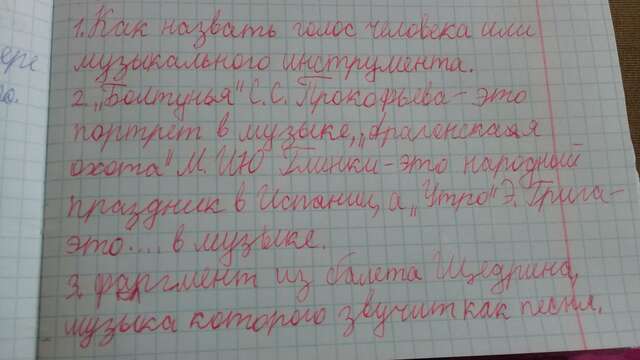 1. Как назвать голос человека или
музыкального инструмента.
2. „Болтунья" С.С. Прокофьева - это
портрет в музыке, „арагонская
охота" М. И Ю Глинки - это народный
праздник в Испании, а „Утро" Э. Грига -
это.... в музыке.
3. фрагмент из балета Щедрина,
музыка которого звучит как песня.